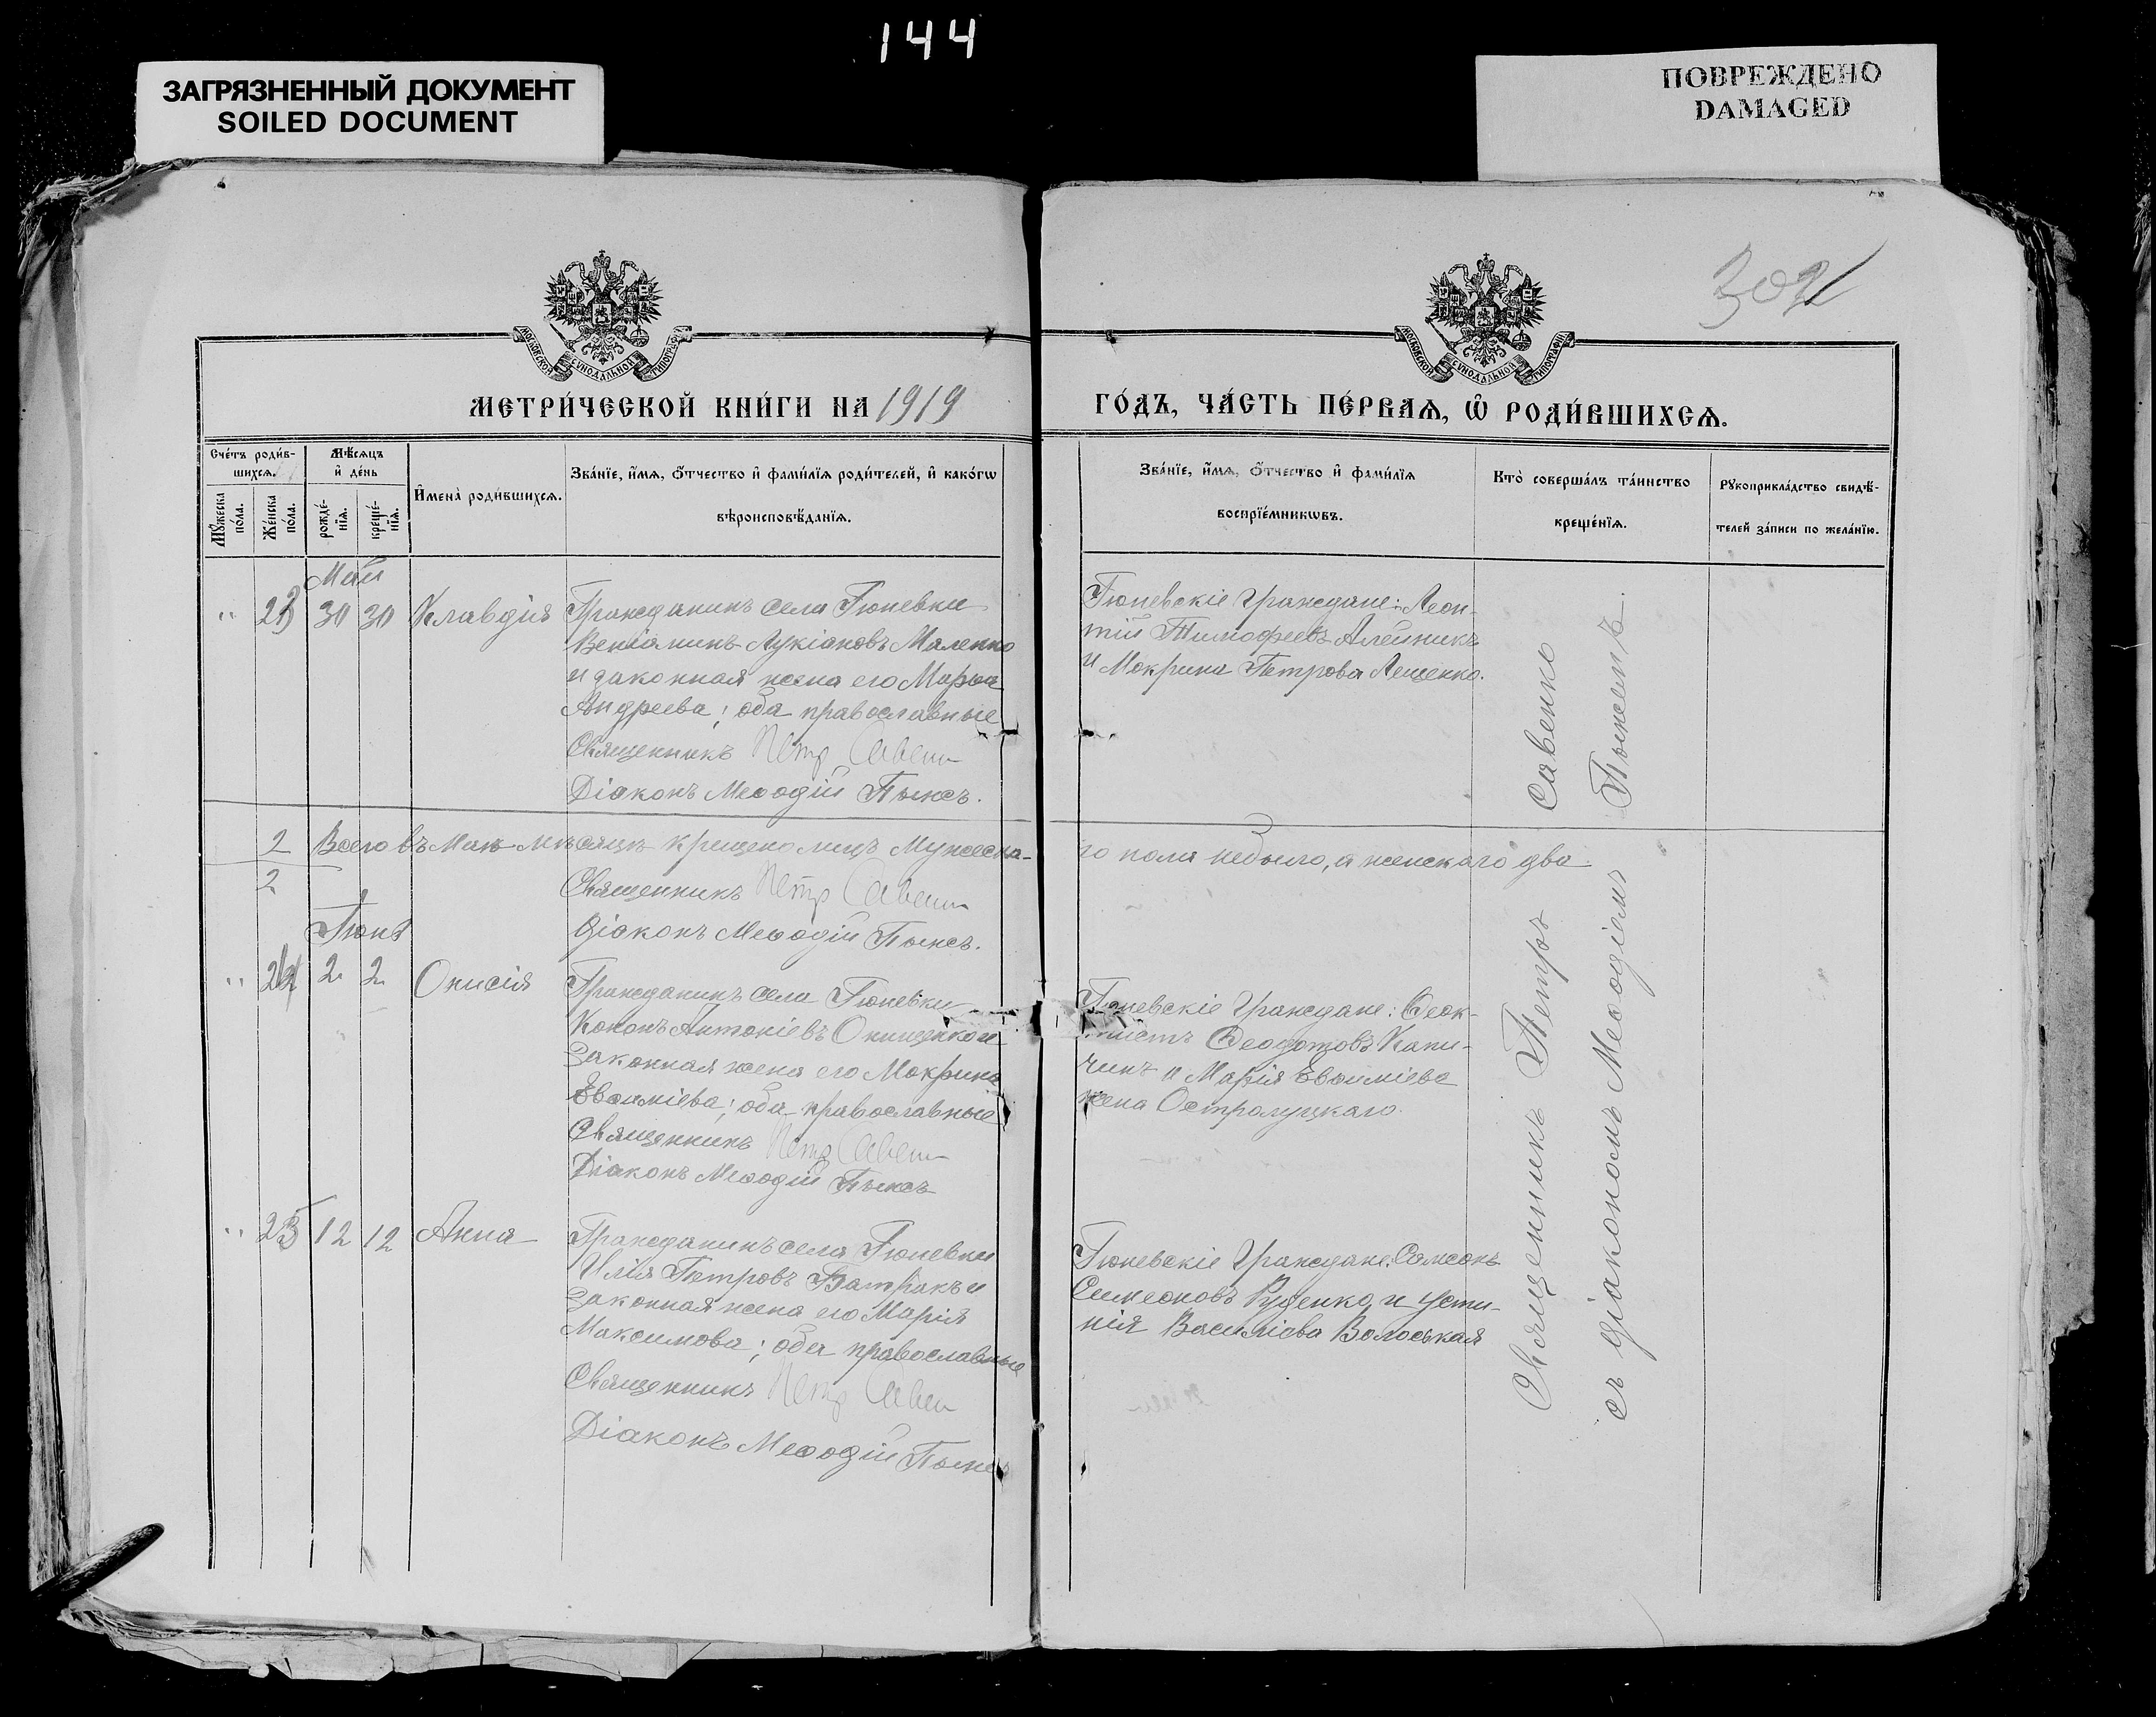 144
ЗАГРЯЗНЕННЫЙ ДОКУМЕНТ
SOILED DOCUMENT
ПОВРЕЖДЕНО
DAMAGED
МОСКОВСКОЙ СѴНОДАЛЬНОЙ ТИПОГРАФІИ
МОСКОВСКОЙ СѴНОДАЛЬНОЙ ТИПОГРАФІИ
МЕТРИ́ЧЕСКОЙ КНИ́ГИ НА 1919
ГО́ДЪ, ЧА́СТЬ ПЕ́РВАѦ, Ѽ РОДИ́ВШИХСѦ.
Сче́тъ роди́в-
шихсѧ.
Мѣ́сѧцъ
и҆ де́нь
Мꙋ́жеска
по́ла.
Же́нска
по́ла.
рожде́-
нїѧ.
креще́-
нїѧ.
И҆мена̀ роди́вшихсѧ.
Зва́нїе, и҆́мѧ, ѻ҆́тчество и҆ фами́лїѧ роди́телей, и҆ како́гѡ
вѣроисповѣ́данїѧ.
Зва́нїе, и҆́мѧ, ѻ҆́тчество и҆ фами́лїѧ
воспрїе́мникѡвъ.
Кто̀ соверша́лъ та́инство
креще́нїѧ.
Рꙋкоприкла́дство свидѣ́-
телей за́писи по жела́нїю.
Май
" 23 30 30 Клавдія
Гражданинъ села Гюневки
Веніаминъ Лукіановъ Маленко
и законная жена его Марѳа
Андреева; оба православные
Священникъ Петр Савен
Діаконъ Меѳодій Пыжъ.
Гюневскіе граждане: Леон-
тій Тимофеевъ Алейникъ
и Мокрина Петрова Лещенко.
2 Всего въ Маѣ мѣсяцѣ крещено лицъ Мужеска-
го пола небыло, а женскаго два.
2
Священникъ Петр Савен
Діаконъ Меѳодій Пыжъ.
Іюнь
" 2 2 Онисія
Гражданинъ села Гюневки
Кононъ Антоніевъ Онищенко и
законная жена его Мокрина
Евѳиміева; оба православные
Священникъ Петр Савен
Діаконъ Меѳодій Пыжъ
Гюневскіе граждане: Ѳеок-
тистъ Ѳеодотовъ Капи-
чинъ и Марія Евѳиміева
жена Остролуцкаго.
" 12 12 Анна
Гражданинъ села Гюневки
Илія Петровъ Батракъ и
законная жена его Марія
Максимова; оба православные
Священникъ Петр Савен
Діаконъ Меѳодій Пыжъ
Гюневскіе граждане: Самсонъ
Симеоновъ Руденко и Усти-
нія Василіева Волоськая
Священникъ Петръ Савенко
съ діакономъ Меѳодіемъ